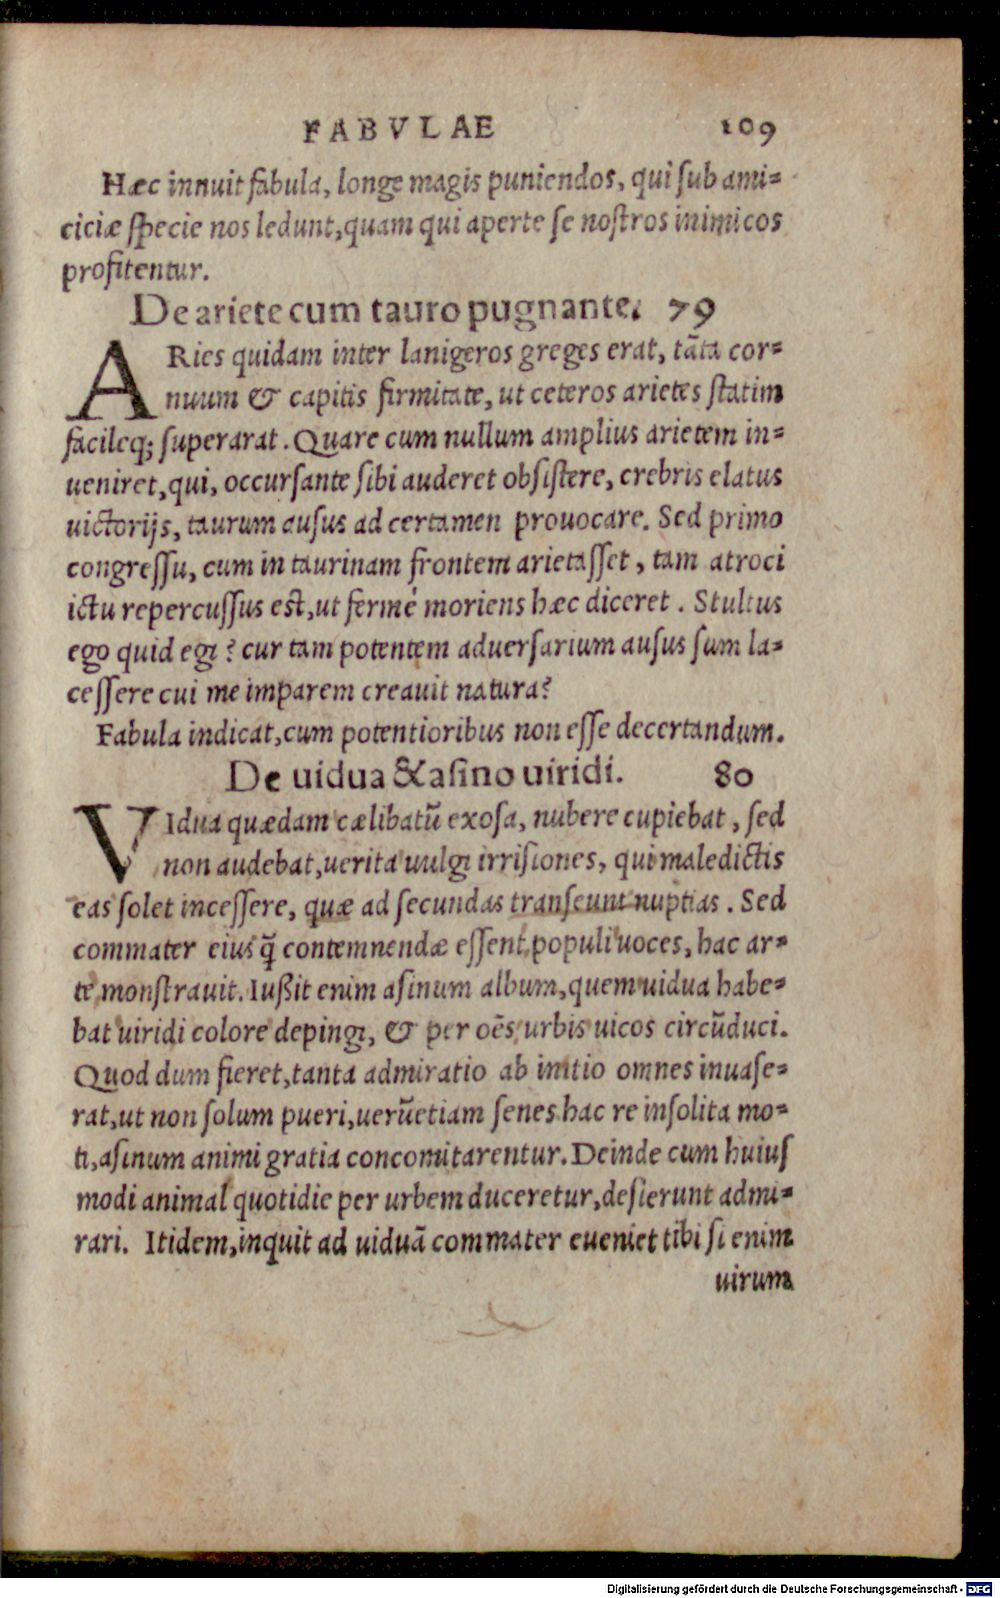 FABVLAE 109
Hæc innuit fabula, longe magis puniendos, qui sub ami=
ciciæ specie nos ledunt, quam qui aperte se nostros inimicos
profitentur.
De ariete cum tauro pugnante. 79
ARies quidam inter lanigeros greges erat, tãta cor=
nuum & capitis firmitate, ut ceteros arietes statim
facileq; superarat. Quare cum nullum amplius arietem in=
ueniret, qui, occursante sibi auderet obsistere, crebris elatus
uictorijs, taurum ausus ad certamen prouocare. Sed primo
congressu, cum in taurinam frontem arietasset, tam atroci
ictu repercussus est, ut fermé moriens hæc diceret. Stultus
ego quid egi? cur tam potentem aduersarium ausus sum la=
cessere cui me imparem creauit natura?
Fabula indicat, cum potentioribus non esse decertandum.
De uidua & asino uiridi. 80
VIdua quædam cælibatũ exosa, nubere cupiebat, sed
non audebat, uerita uulgi irrisiones, qui maledictis
eas solet incessere, quæ ad secundas transeunt nuptias. Sed
commater eius q̃ contemnendæ essent populi uoces, hac ar=
te monstrauit. Iußit enim asinum album, quem uidua habe=
bat uiridi colore depingi, & per oẽs urbis uicos circũduci.
Quod dum fieret, tanta admiratio ab initio omnes inuase=
rat, ut non solum pueri, uerũetiam senes hac re insolita mo=
ti, asinum animi gratia concomitarentur. Deinde cum huius
modi animal quotidie per urbem duceretur, desierunt admi=
rari. Itidem, inquit ad uiduã commater eueniet tibi si enim
uirum
Digitalisierung gefördert durch die Deutsche Forschungsgemeinschaft - DFG